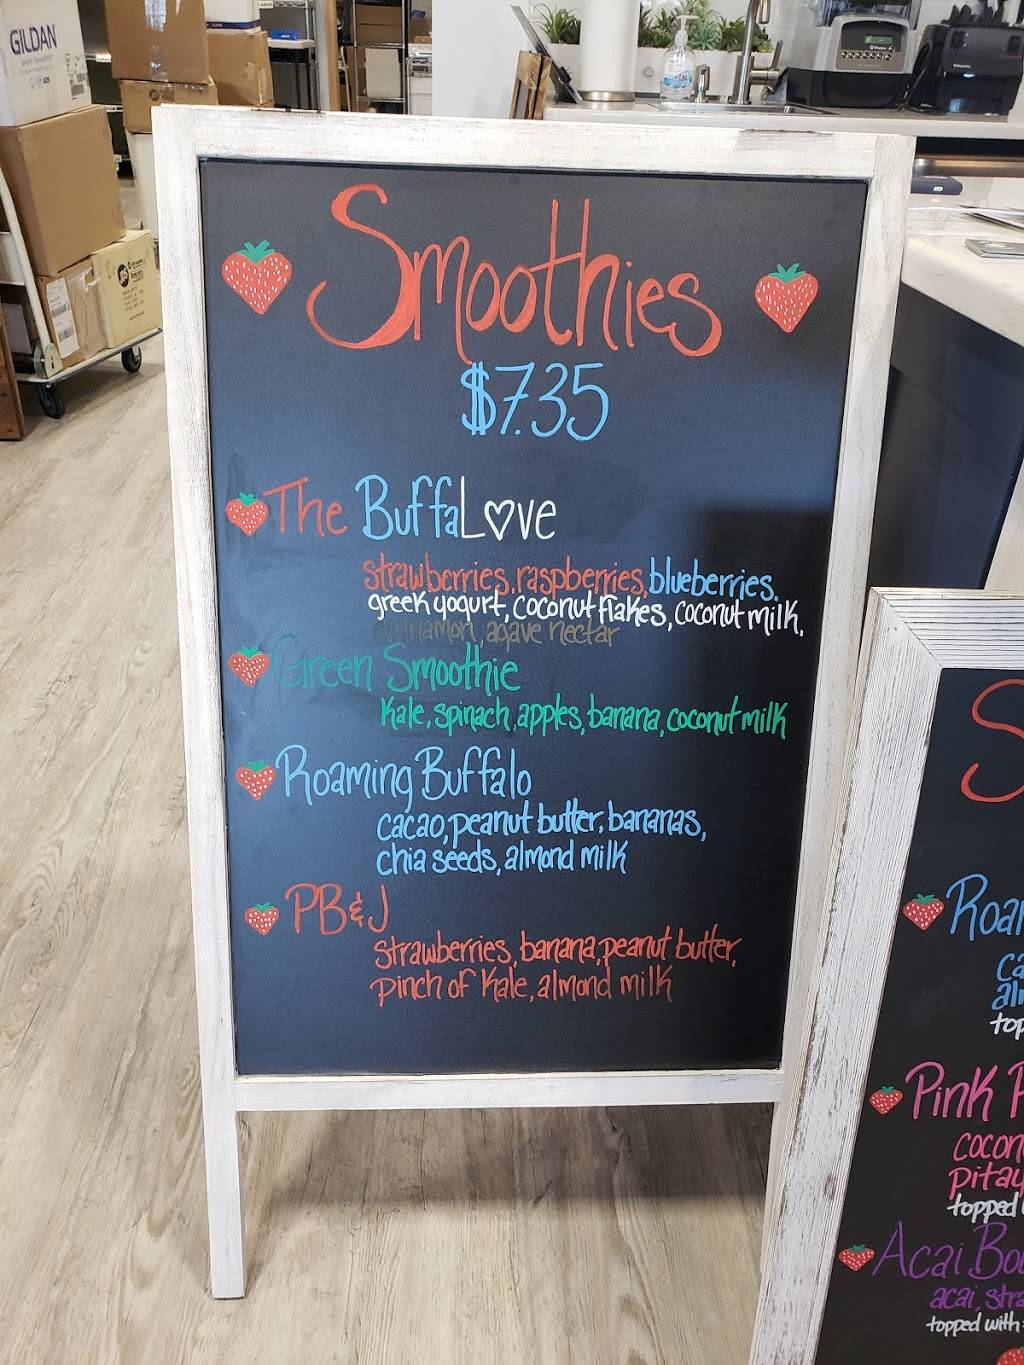 GILDAN
Smoothies
$7.35
The BuffaLove
strawberries, raspberries, blueberries.
greek yogurt, coconut flakes, coconut milk,
cinnamon, agave nectar
Green Smoothie
Kale, spinach, apples, banana, coconut milk
Roaming Buffalo
cacao, peanut butter, bananas,
chia seeds, almond milk
PB&J
strawberries, banana, peanut butter,
pinch of kale, almond milk
S
Roa
ca
al
top
Pink P
cocon
pitay
topped
Acai Bo
acai, stra
topped with